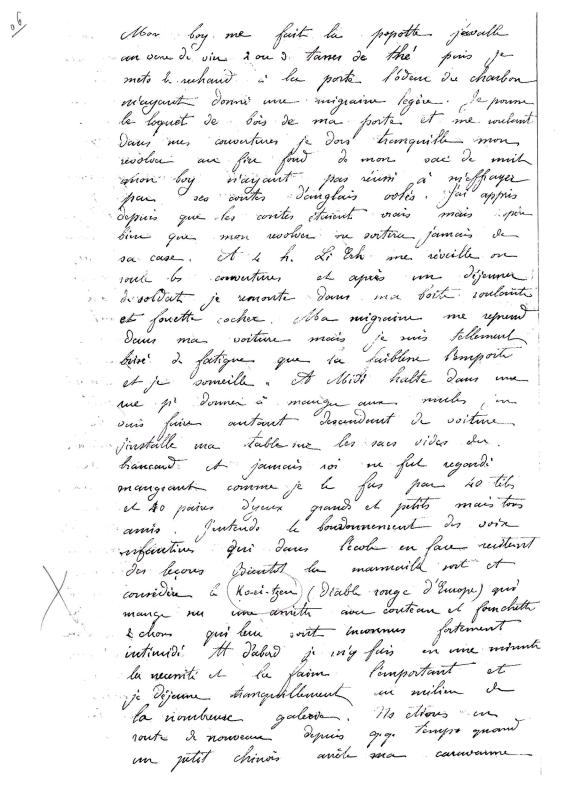 06
Mon boy me fait la popotte j'avalle
un verre de vin 2 ou 3 tasses de thé puis je
mets le rechaud à la porte l'odeur du charbon
m'ayant donné une migraine legère. Je pousse
le loquet de bois de ma porte et me roulant
dans mes couvertures je dors tranquille mon
révolver au fin fond de mon sac de nuit
mon boy n'ayant pas réussi à m'effrayer
par ses contes d'anglais volés. J'ai appris
depuis que les contes étaient vrais mais
bien que mon revolver ne sortira jamais de
sa case. A 4 h. Li Erh me réveille on
roule les couvertures et après un déjeuner
de soldat je remonte dans ma boîte roulante
et fouette cocher. Ma migraine me reprend
dans ma voiture mais je suis tellement
brisé de fatigue que la faiblesse l'emporte
et je sommeille. A Midi halte dans une
rue pr donner à manger aux mules, j'en
vais faire autant descendant de voiture
j'installe ma table sur les sacs vides du
brancard et jamais roi ne fut regardé
mangeant comme je le fus par 40 têtes
et 40 paires d'yeux grands et petits mais tous
amis. J'entends le bourdonnement des voix
enfantines qui dans l'école en face recitent
des leçons Bientôt la marmaille sort et
considère le Koei-tzeu (Diable rouge d'Europe) qui
mange sur une assiette avec couteau et fourchette
2 choses qui leur sont inconnues fortement
intimidé tt d'abord je m'y fais en une minute
la necessité et la faim l'emportant et
je déjeune tranquillement au milieu de
la nombreuse galerie. Ns étions en
route de nouveau depuis qq temps quand
un petit chinois arrête ma caravanne